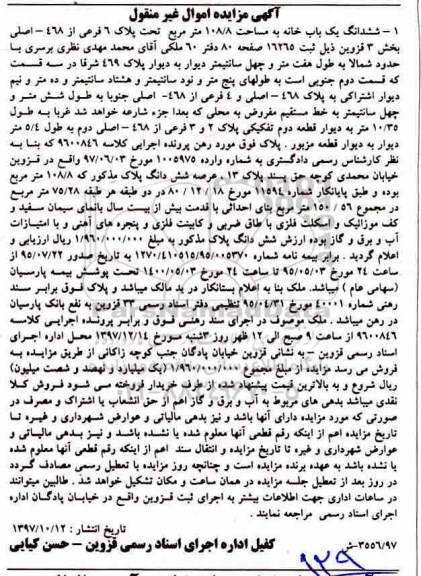 آگهی مزایده اموال غیر منقول
۱ – ششدانگ یک باب خانه به مساحت ۱۰۸/۸ متر مربع تحت پلاک ۶ فرعی از ۴۶۸ – اصلی
بخش ۳ قزوین ذیل ثبت ۱۶۲۶۵ صفحه ۸۰ دفتر ۶۰ ملکی آقای محمد مهدی نظری برسری با
حدود شمالا به طول هفت متر و چهل سانتیمتر دیوار به دیوار پلاک ۴۶۹ شرقا در سه قسمت
که قسمت دوم جنوبی است به طولهای پنج متر و نود سانتیمتر و هشتاد سانتیمتر و ده متر و نیم
دیوار اشتراکی به پلاک ۴۶۸ – اصلی و ۴ فرعی از ۴۶۸- اصلی جنوبا به طول شش متر و
چهل سانتیمتر به خط مستقیم مفروض به محلی که بعدا جزء شارعه خواهد شد غربا به طول
۱۰/۳۵ متر به دیوار قطعه دوم تفکیکی پلاک ۲ و ۳ فرعی از ۴۶۸ – اصلی دوم به طول ۵/۴ متر
دیوار به دیوار قطعه مزبور . پلاک فوق مورد رهن پرونده اجرایی کلاسه ۹۶۰۰۸۴۶ که بنا به
نظر کارشناس رسمی دادگستری به شماره وارده ۱۰۰۵۹۷۵ مورخ ۹۷/۰۶/۰۳ واقع در قزوین
خیابان محمدی کوچه حق پسند پلاک ۱۳ عرصه شش دانگ پلاک مذکور که ۱۰۸/۸ متر مربع
بوده و طبق پایانکار شماره ۱۱۵۹۴ مورخ ۱۸ / ۱۲ / ۸۰ در دو طبقه هر طبقه ۷۵/۲۸ متر مربع
در مجموع ۵۶ / ۱۵۰ متر مربع بنای احداثی با قدمت بیش از بیست سال بانمای سیمان سفید و
کف موزائیک و اسکلت فلزی با طاق ضربی و کابینت فلزی و پنجره های آهنی و با امتیازات
آب و برق و گاز بوده ارزش شش دانگ پلاک مذکور به مبلغ ۱/۹۶۰/۰۰۰/۰۰۰ ریال ارزیابی و
اعلام گردید . برابر بیمه نامه شماره ۱۲۷۰/۴۱۰۵۱۵/۹۵/۰۰۵۳۷۰ به تاریخ صدور ۹۵/۰۷/۲۲ از
ساعت ۲۴ مورخ ۹۵/۰۵/۰۳ تا ساعت ۲۴ مورخ ۱۴۰۰/۰۵/۰۳ تحت پوشش بیمه پارسیان
(سهامی عام ) میباشد. ملک بنا به اعلام بستانکار در ید مالک میباشد و پلاک فوق برابر سند
رهنی شماره ۴۰۰۰۱ مورخ ۹۵/۰۴/۳۱ تنظیمی دفتر اسناد رسمی ۳۳ قزوین به نفع بانک پارسیان
در رهن میباشد . ملک موصوف در اجرای سند رهنی فوق و برابر پرونده اجرایی کلاسه
۹۶۰۰۸۴۶ از ساعت ۹ صبح الی ۱۲ ظهر روز ۳شنبه مورخ ۹۷/۱۲/۱۴ محل اداره اجرای
اسناد رسمی قزوین – به نشانی قزوین خیابان پادگان جنب کوچه زاکانی از طریق مزایده به
فروش می رسد مزایده از مبلغ مجموع ۱/۹۶۰/۰۰۰/۰۰۰ (یک میلیارد و نهصد و شصت میلیون)
ریال شروع و به بالاترین قیمت پیشنهاد شده از طرف خریدار فروخته می شود فروش کلا
نقدی میباشد بدهی های مربوط به آب و برق و گاز اعم از حق انشعاب یا اشتراک و مصرف در
صورتی که مورد مزایده دارای آنها باشد و نیز بدهی مالیاتی و عوارض شهرداری و غیره تا
تاریخ مزایده اعم از اینکه رقم قطعی آنها معلوم شده یا نشده باشد و نیز بدهی مالیاتی و
عوارض شهرداری و غیره تا تاریخ مزایده و انتقال سند اعم از اینکه رقم قطعی آنها معلوم شده
یا نشده باشد به عهده برنده مزایده است و چنانچه روز مزایده با تعطیل رسمی مصادف گردد
در روز بعد از تعطیل جلسه مزایده در همان ساعت و مکان تشکیل خواهد شد . طالبین میتوانند
در ساعات اداری جهت اطلاعات بیشتر به اجرای ثبت قزوین واقع در خیابان پادگان اداره
اجرای اسناد رسمی مراجعه نمایند .
تاریخ انتشار : ۱۳۹۷/۱۰/۱۲
۳۵۵۶/۹۷-ش کفیل اداره اجرای اسناد رسمی قزوین – حسن کیایی